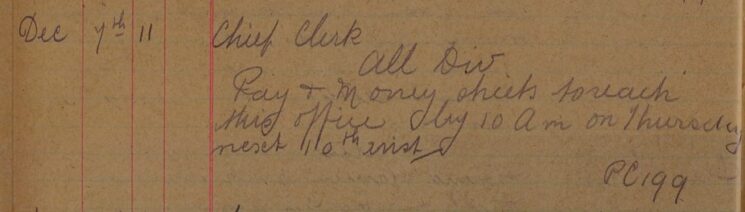 Dec 7th 11 Chief Clerk
All Div
Pay & Money sheets to reach
this office by 10 am on Thursday
next 10th inst
PC199